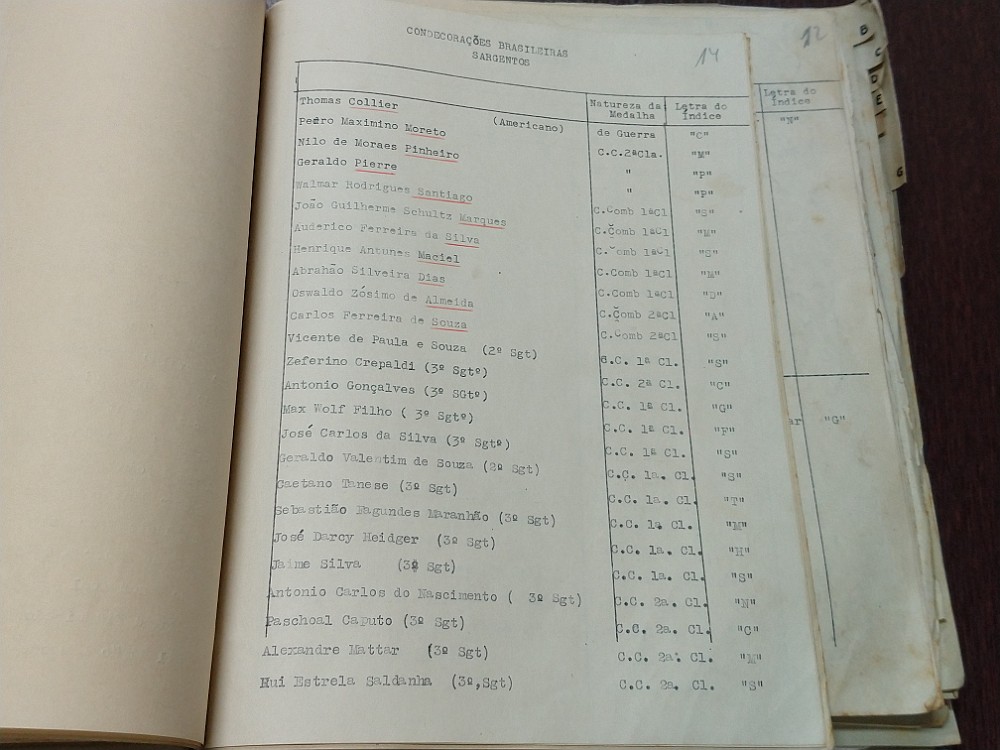 CONDECORAÇÕES BRASILEIRAS
SARGENTOS
14
Natureza da Medalha Letra do Índice
Thomas Collier (Americano) de Guerra "C"
Pedro Maximino Moreto C.C.2ªCla. "M"
Nilo de Moraes Pinheiro " "P"
Geraldo Pierre " "P"
Walmar Rodrigues Santiago C.Comb 1ªCl "S"
João Guilherme Schultz Marques C.Comb 1ªCl "M"
Auderico Ferreira da Silva C.Comb 1ªCl "S"
Henrique Antunes Maciel C.Comb 1ªCl "M"
Abrahão Silveira Dias C.Comb 1ªCl "D"
Oswaldo Zósimo de Almeida C.Comb 2ªCl "A"
Carlos Ferreira de Souza C.Comb 2ªCl "S"
Vicente de Paula e Souza (2º Sgt) C.C. 1ª Cl. "S"
Zeferino Crepaldi (3º Sgtº) C.C. 2ª Cl. "C"
Antonio Gonçalves (3º SGtº) C.C. 1ª Cl. "G"
Max Wolf Filho ( 3º Sgtº) C.C. 1ª Cl. "F"
José Carlos da Silva (3º Sgtº) C.C. 1ª Cl. "S"
Geraldo Valentim de Souza (2º Sgt) C.C. 1a. Cl. "S"
Caetano Tanese (3º Sgt) C.C. 1a. Cl. "T"
Sebastião Fagundes Maranhão (3º Sgt) C.C. 1a. Cl. "M"
José Darcy Heidger (3º Sgt) C.C. 1a. Cl. "H"
Jaime Silva (3º Sgt) C.C. 1a. Cl. "S"
Antonio Carlos do Nascimento ( 3º Sgt) C.C. 2a. Cl. "N"
Paschoal Caputo (3º Sgt) C.C. 2a. Cl. "C"
Alexandre Mattar (3º Sgt) C.C. 2a. Cl. "M"
Rui Estrela Saldanha (3º,Sgt) C.C. 2a. Cl. "S"
12
Letra do
Índice
"M"
ar "G"
B
C
D
E
G